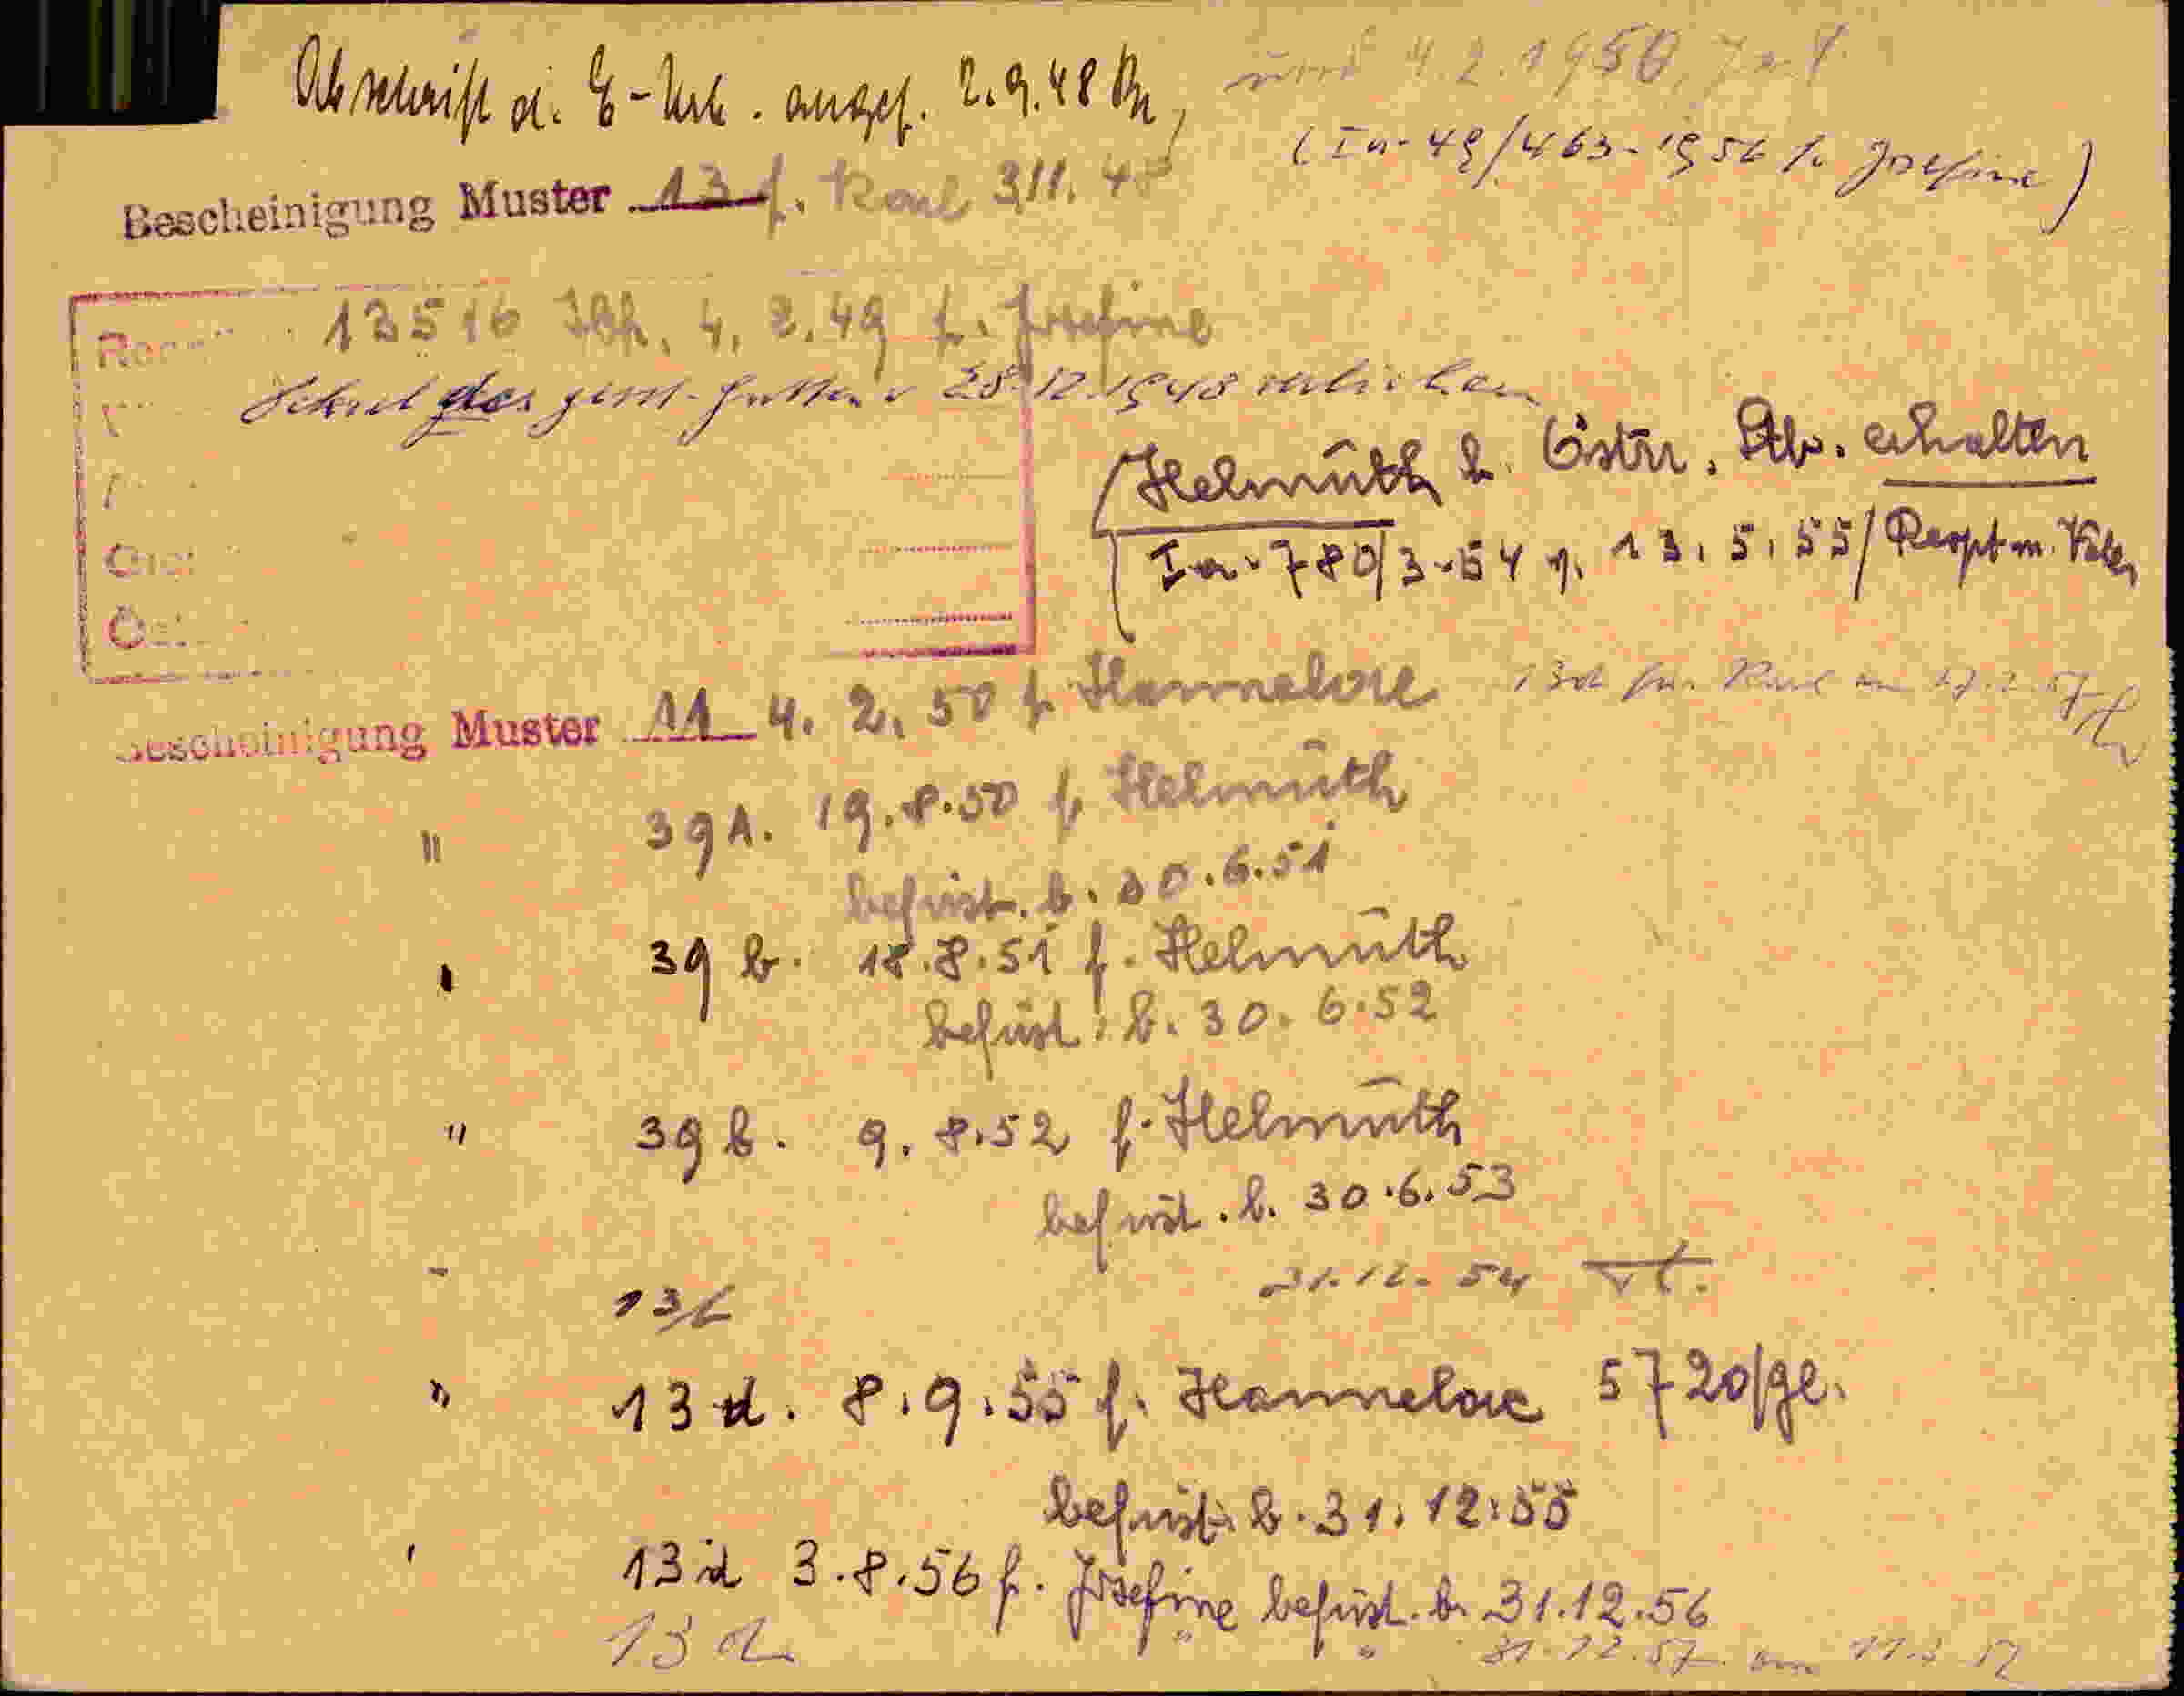 Abschrift d. E-Urk. ausgef. 2.9.48
und 4.2.1950
(Ia-49/463-1956 f. Josefine)
Bescheinigung Muster 13 f. Karl 3.11.48
13516 4.2.49 f. Josefine
28.12.1948
Helmuth h. Östrr. Stb. erhalten
Ia-780/3-54 v. 13.5.55/
Bescheinigung Muster 11 4.2.50 f. Hannelore
13d für Karl am 27.2.57
" 39A. 19.8.50 f. Helmuth
befrist. b. 30.6.51
" 39b. 18.8.51 f. Helmuth
befrist. b. 30.6.52
" 39b. 9.8.52 f. Helmuth
befrist. b. 30.6.53
31.12.54
13/b
" 13d. 8.9.55 f. Hannelore 5720/gl.
befrist. b. 31.12.55
" 13d 3.8.56 f. Josefine befrist. b. 31.12.56
13d " " 31.12.57 am